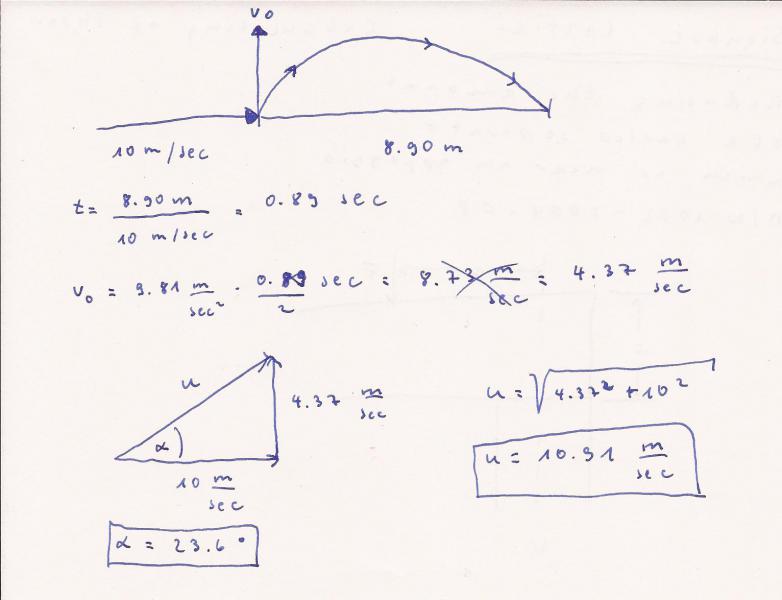 v₀
10 m/sec
8.90 m
t = 8.90 m / 10 m/sec = 0.89 sec
v₀ = 9.81 m/sec² · 0.89/2 sec = 8.73 m/sec = 4.37 m/sec
u
4.37 m/sec
α
10 m/sec
α = 23.6°
u = √4.37² + 10²
u = 10.91 m/sec